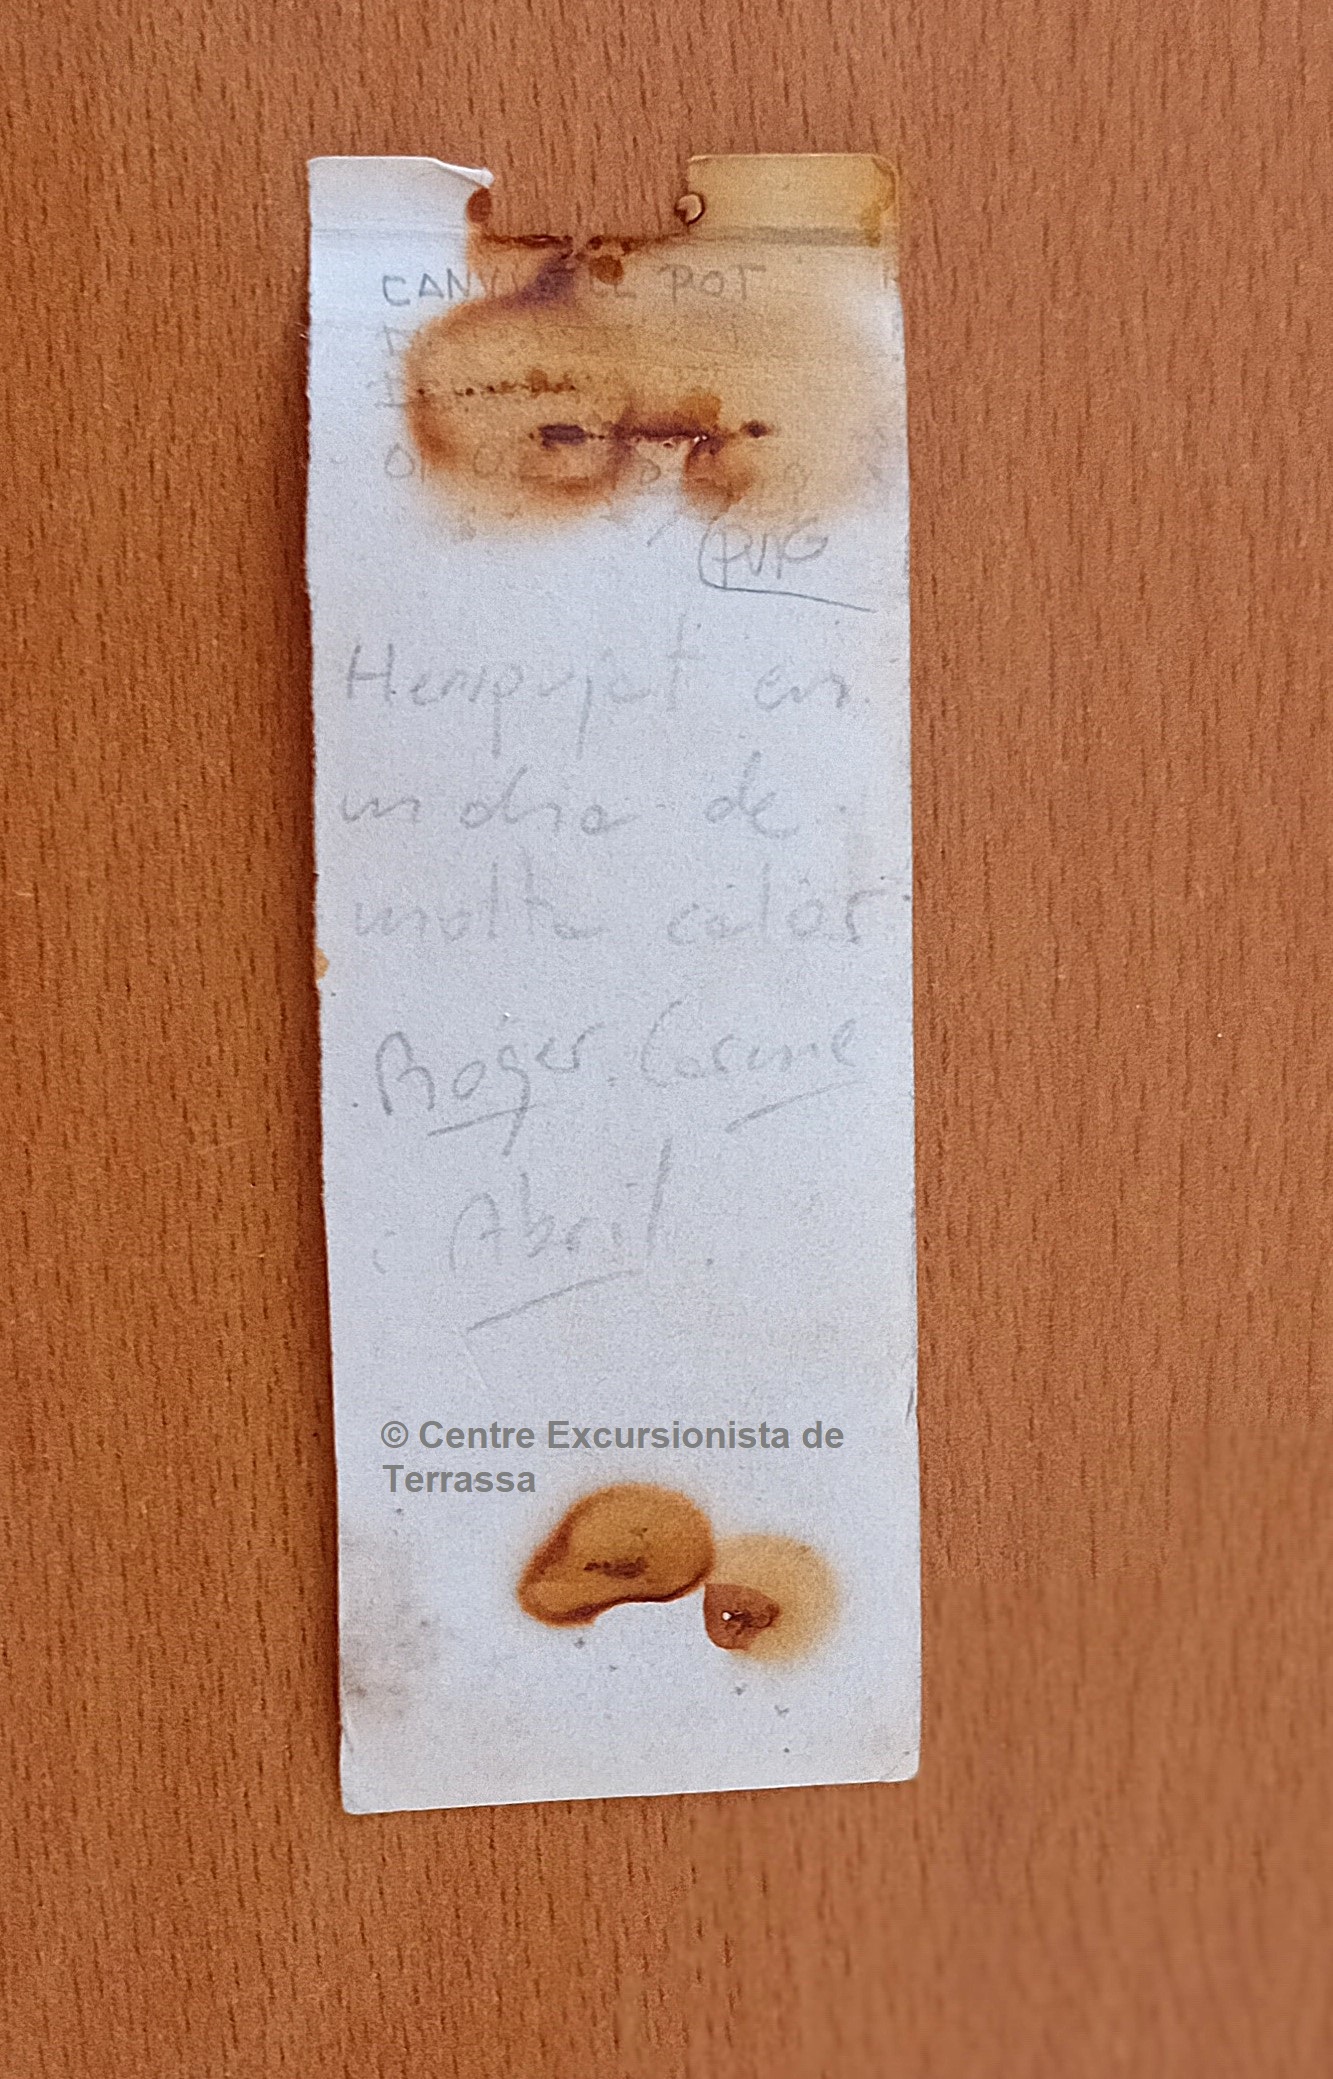 CANVI DEL POT
PUIG
Hem pujat en
un dia de
molta calor
Roger, Carme
i Abril.
© Centre Excursionista de
Terrassa